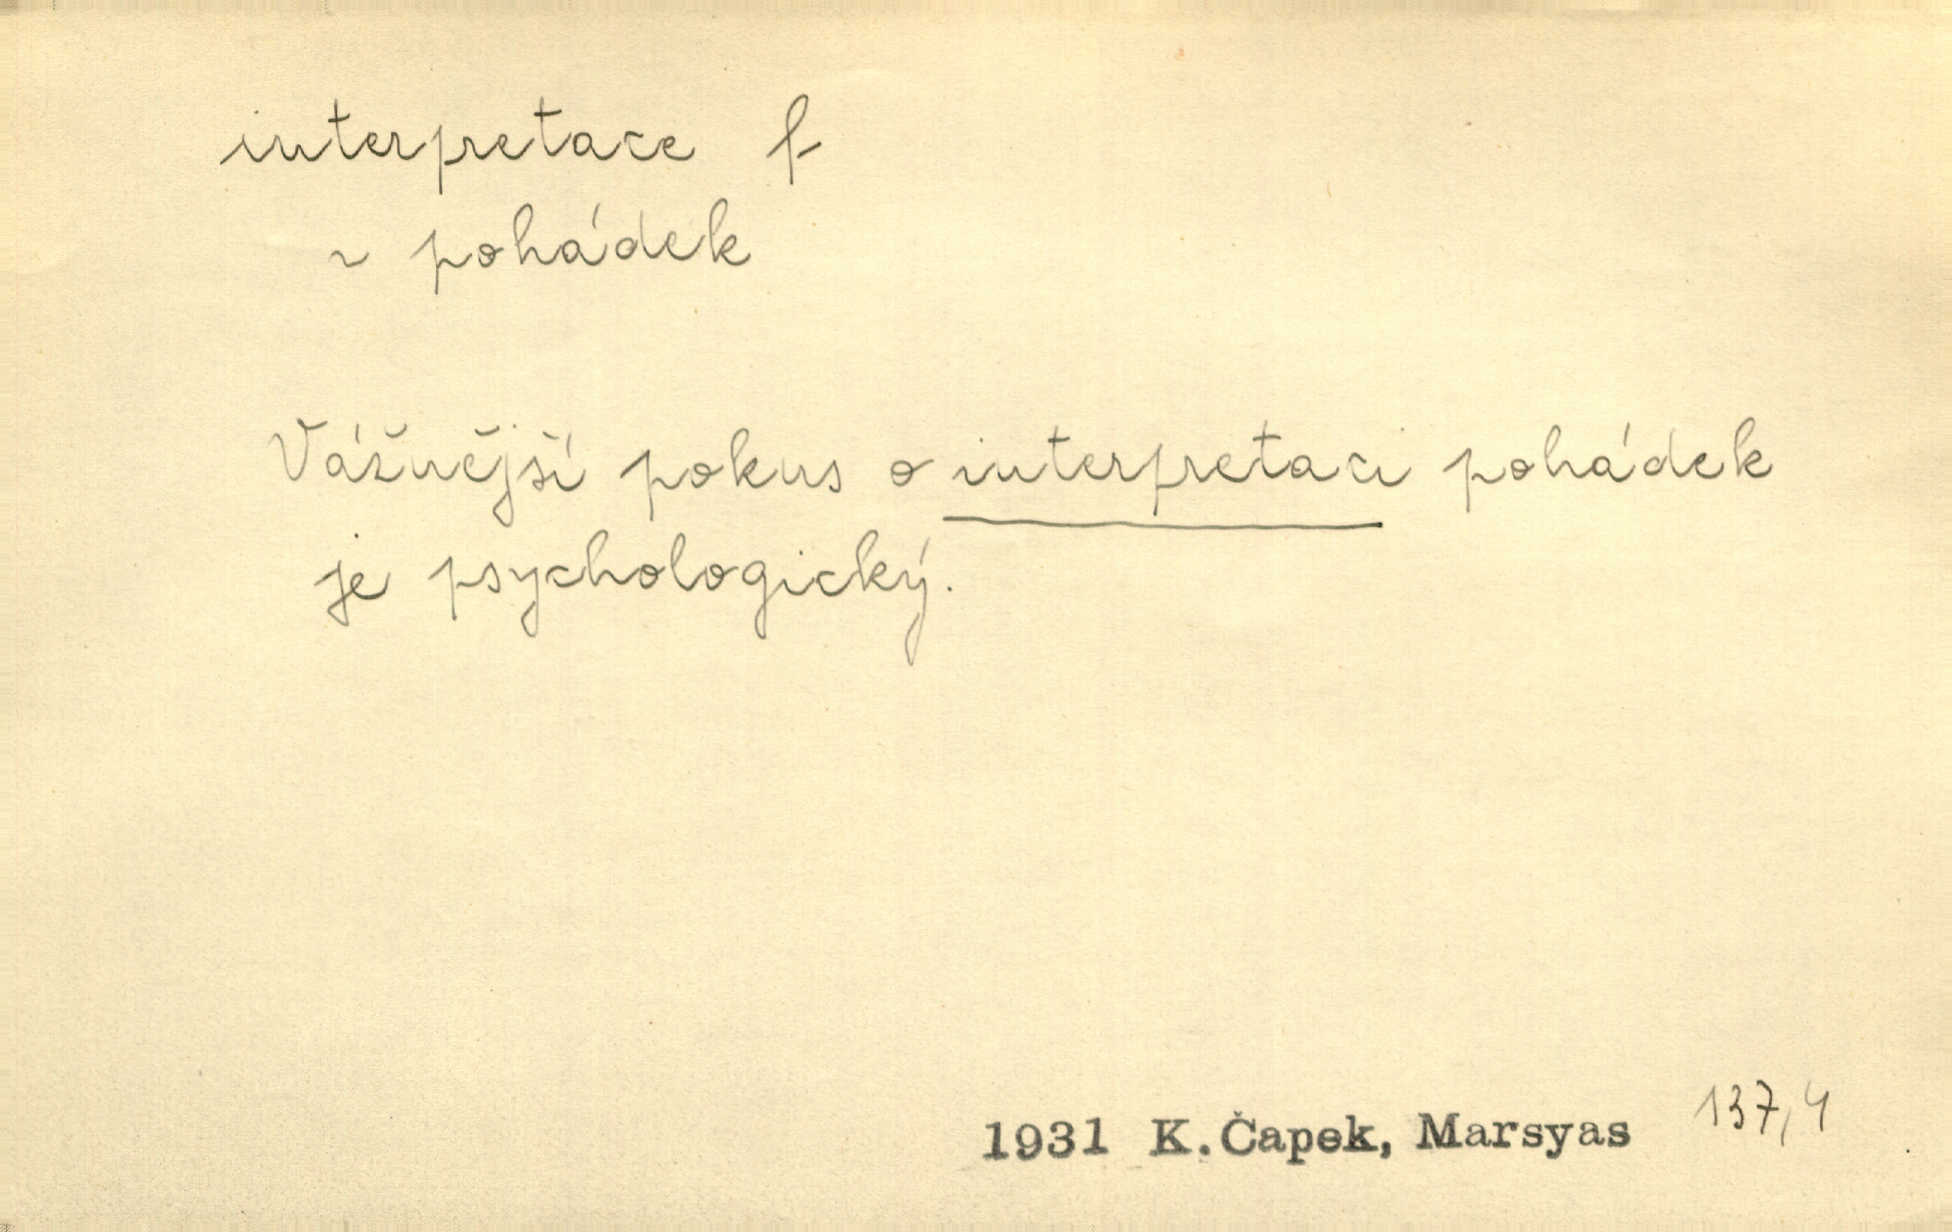 interpretace f
~ pohádek
Vážnější pokus o interpretaci pohádek
je psychologický.
1931 K. Čapek, Marsyas 137,4